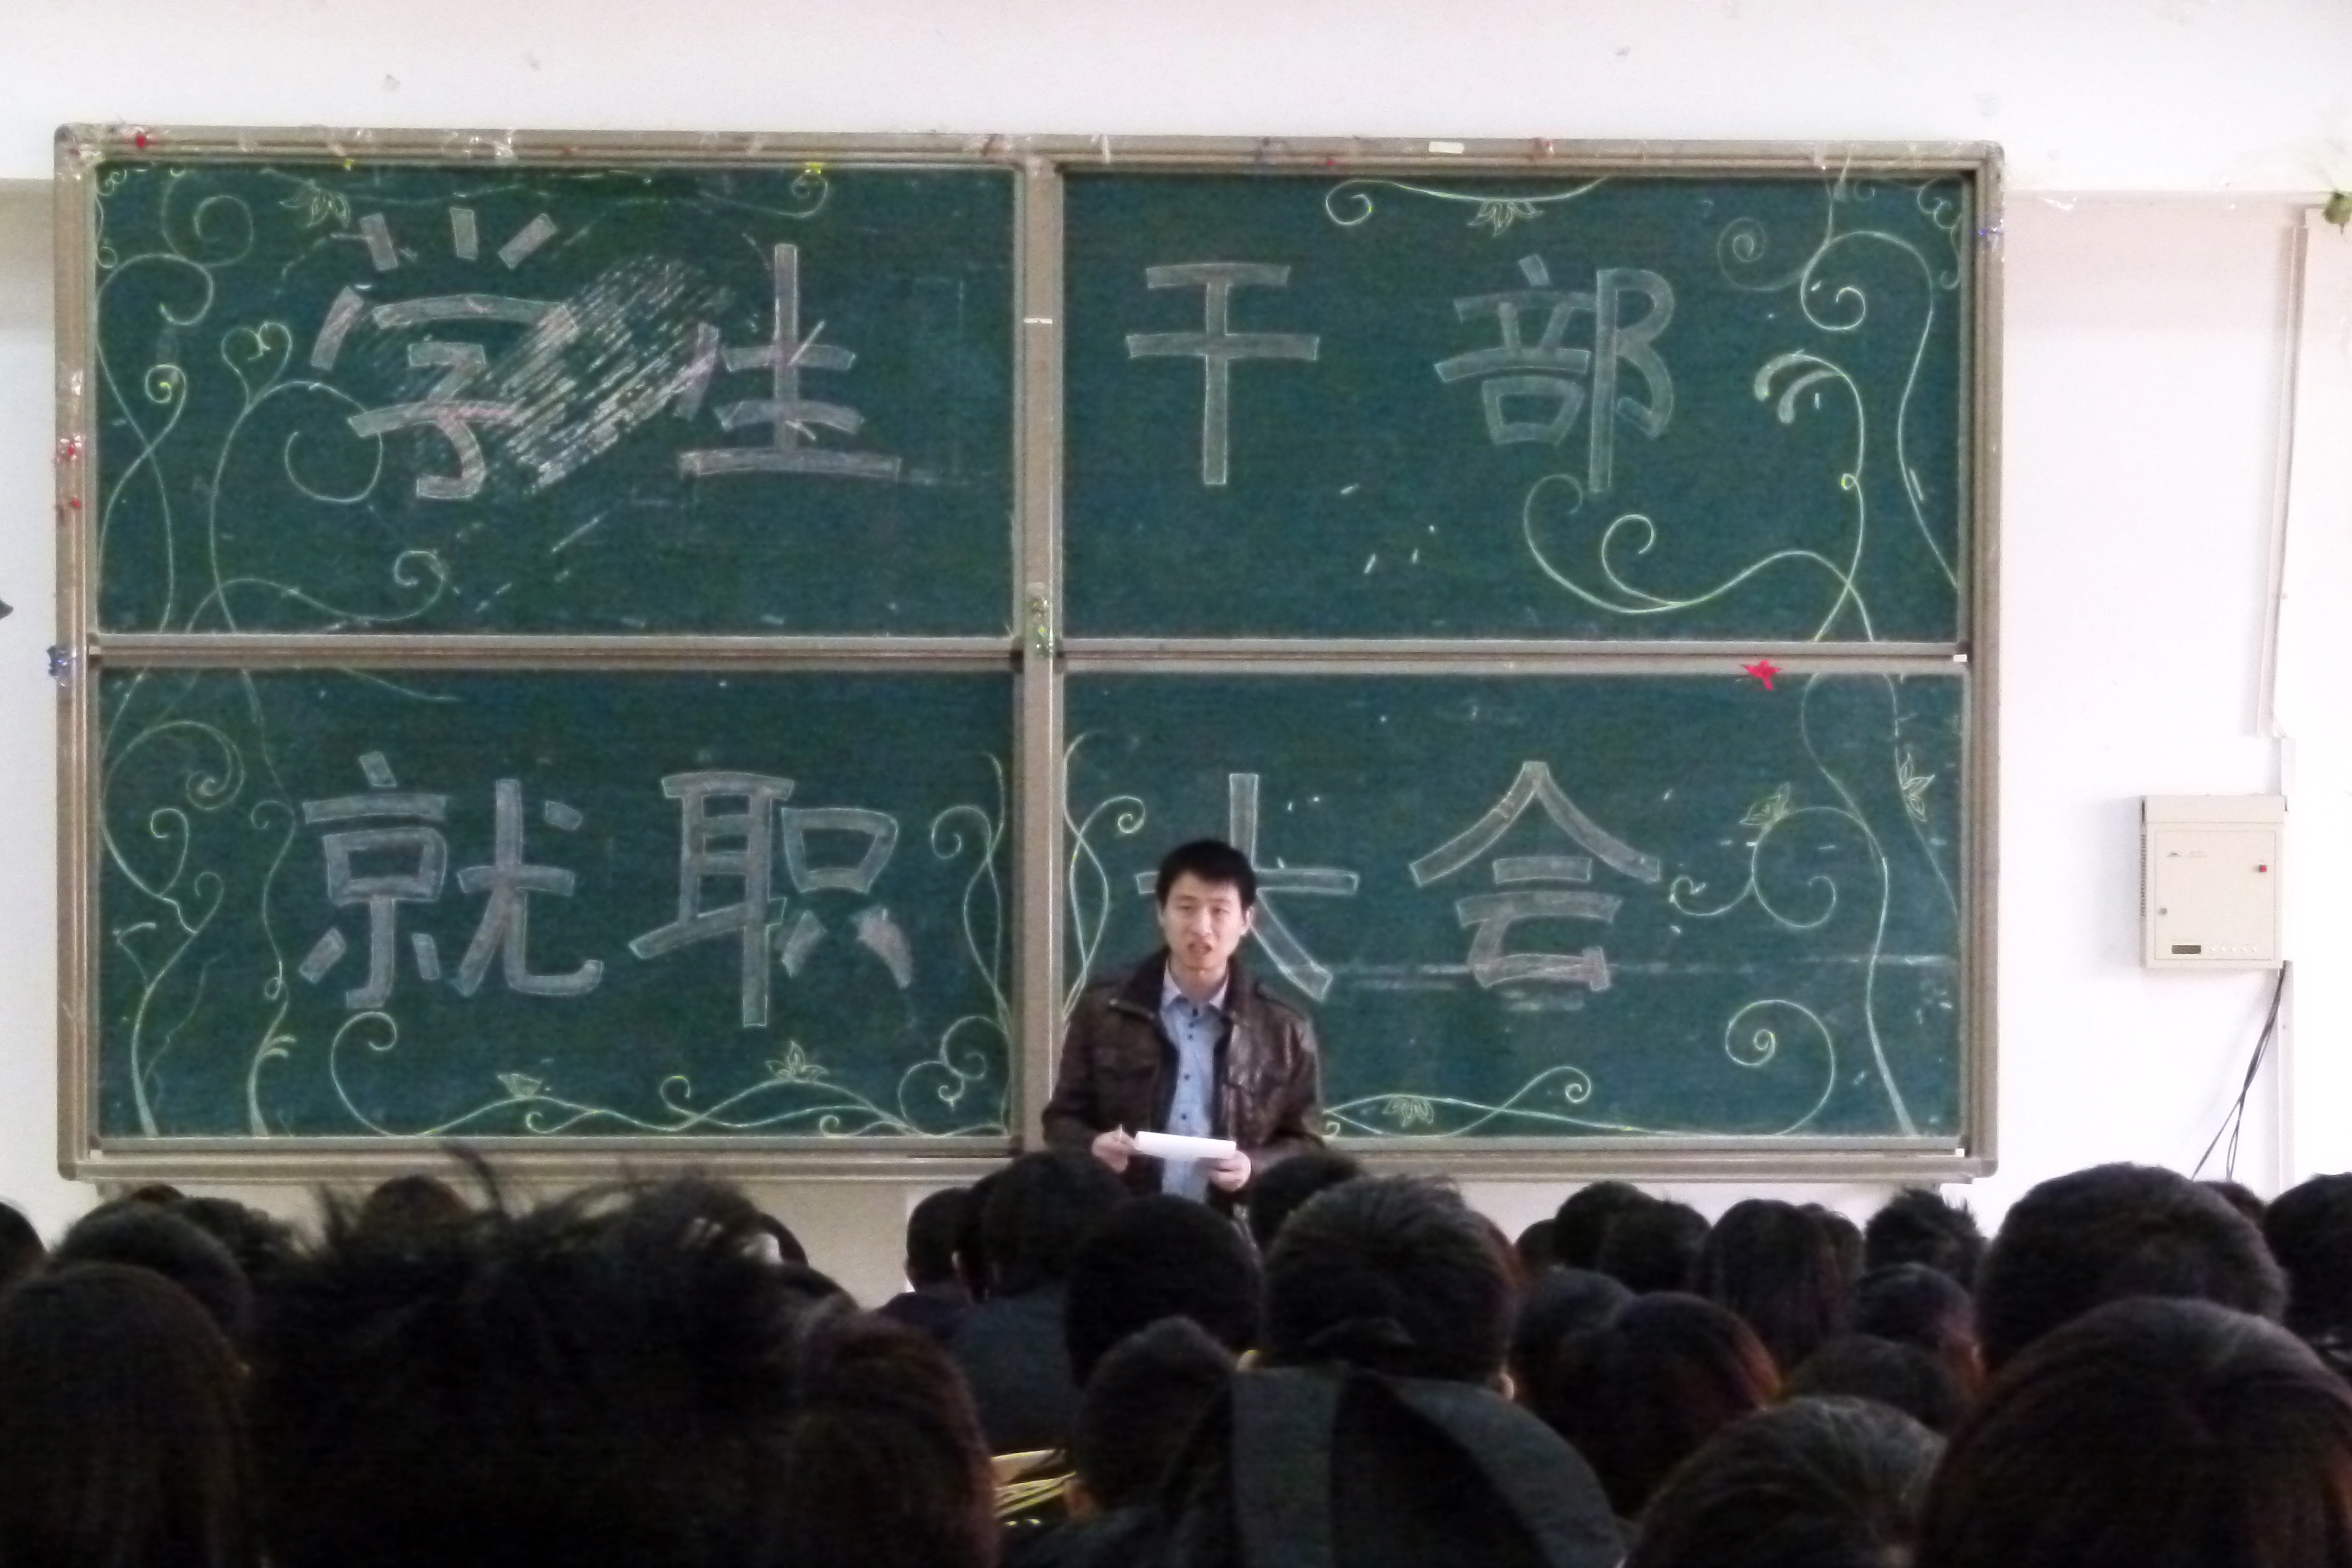 学生干部
就职大会